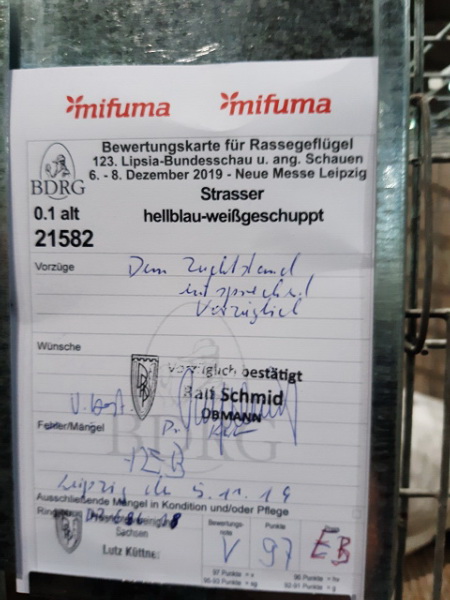 mifuma mifuma
Bewertungskarte für Rassegeflügel
123. Lipsia-Bundesschau u. ang. Schauen
6. - 8. Dezember 2019 - Neue Messe Leipzig
BDRG
Strasser
0.1 alt
hellblau-weißgeschuppt
21582
Vorzüge
Dem Zuchtstand
entsprechend
Vorzüglich
Wünsche
Vorzüglich bestätigt
Ralf Schmid
OBMANN
Fehler/Mängel
BDRG
Ausschließende Mängel in Kondition und/oder Pflege
Sachsen
Lutz Küttner
Bewertungsnote
Punkte
V 97 EB
97 Punkte = v
96 Punkte = hv